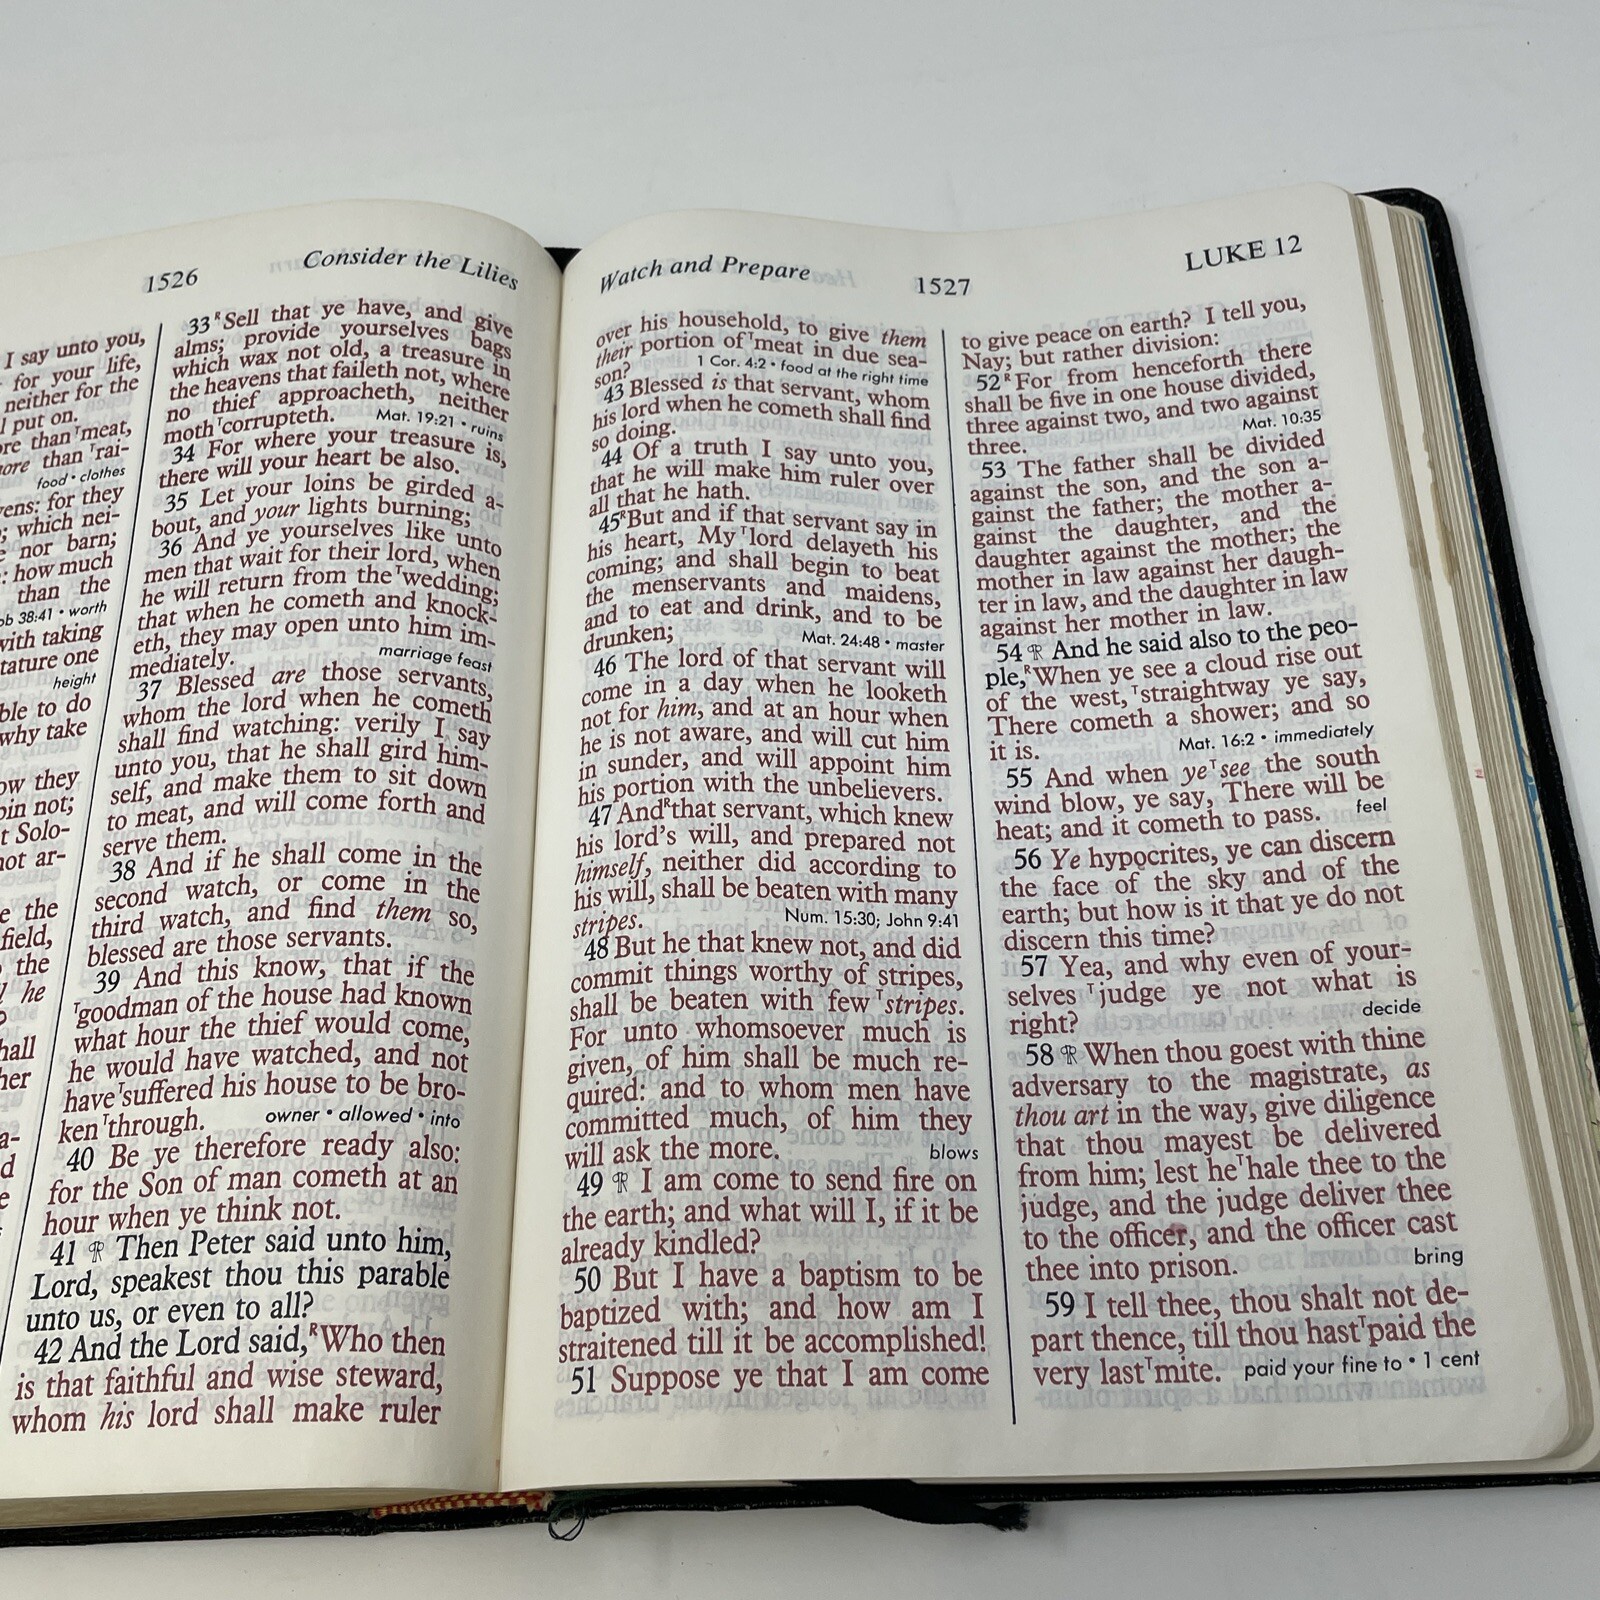 1526
Consider the Lilies
I say unto you,
for your life,
neither for the
put on.
than ᵀmeat,
than ᵀrai-
food • clothes
for they
which nei-
nor barn;
how much
than the
38:41 • worth
with taking
one
height
to do
why take
they
not;
Solo-
not ar-
the
field,
the
he
33 ᴿSell that ye have, and give
alms; provide yourselves bags
which wax not old, a treasure in
the heavens that faileth not, where
no thief approacheth, neither
moth ᵀcorrupteth. Mat. 19:21 • ruins
34 For where your treasure is,
there will your heart be also.
35 Let your loins be girded a-
bout, and your lights burning;
36 And ye yourselves like unto
men that wait for their lord, when
he will return from the ᵀwedding;
that when he cometh and knock-
eth, they may open unto him im-
mediately. marriage feast
37 Blessed are those servants,
whom the lord when he cometh
shall find watching: verily I say
unto you, that he shall gird him-
self, and make them to sit down
to meat, and will come forth and
serve them.
38 And if he shall come in the
second watch, or come in the
third watch, and find them so,
blessed are those servants.
39 And this know, that if the
ᵀgoodman of the house had known
what hour the thief would come,
he would have watched, and not
have ᵀsuffered his house to be bro-
ken ᵀthrough. owner • allowed • into
40 Be ye therefore ready also:
for the Son of man cometh at an
hour when ye think not.
41 ℟ Then Peter said unto him,
Lord, speakest thou this parable
unto us, or even to all?
42 And the Lord said, ᴿWho then
is that faithful and wise steward,
whom his lord shall make ruler
Watch and Prepare
1527
LUKE 12
over his household, to give them
their portion of ᵀmeat in due sea-
son? 1 Cor. 4:2 • food at the right time
43 Blessed is that servant, whom
his lord when he cometh shall find
so doing.
44 Of a truth I say unto you,
that he will make him ruler over
all that he hath.
45 ᴿBut and if that servant say in
his heart, My ᵀlord delayeth his
coming; and shall begin to beat
the menservants and maidens,
and to eat and drink, and to be
drunken; Mat. 24:48 • master
46 The lord of that servant will
come in a day when he looketh
not for him, and at an hour when
he is not aware, and will cut him
in sunder, and will appoint him
his portion with the unbelievers.
47 And ᴿthat servant, which knew
his lord's will, and prepared not
himself, neither did according to
his will, shall be beaten with many
stripes. Num. 15:30; John 9:41
48 But he that knew not, and did
commit things worthy of stripes,
shall be beaten with few ᵀstripes.
For unto whomsoever much is
given, of him shall be much re-
quired: and to whom men have
committed much, of him they
will ask the more. blows
49 ℟ I am come to send fire on
the earth; and what will I, if it be
already kindled?
50 But I have a baptism to be
baptized with; and how am I
straitened till it be accomplished!
51 Suppose ye that I am come
to give peace on earth? I tell you,
Nay; but rather division:
52 ᴿFor from henceforth there
shall be five in one house divided,
three against two, and two against
three. Mat. 10:35
53 The father shall be divided
against the son, and the son a-
gainst the father; the mother a-
gainst the daughter, and the
daughter against the mother; the
mother in law against her daugh-
ter in law, and the daughter in law
against her mother in law.
54 ℟ And he said also to the peo-
ple, ᴿWhen ye see a cloud rise out
of the west, ᵀstraightway ye say,
There cometh a shower; and so
it is. Mat. 16:2 • immediately
55 And when ye ᵀsee the south
wind blow, ye say, There will be
heat; and it cometh to pass. feel
56 Ye hypocrites, ye can discern
the face of the sky and of the
earth; but how is it that ye do not
discern this time?
57 Yea, and why even of your-
selves ᵀjudge ye not what is
right? decide
58 ℟ When thou goest with thine
adversary to the magistrate, as
thou art in the way, give diligence
that thou mayest be delivered
from him; lest he ᵀhale thee to the
judge, and the judge deliver thee
to the officer, and the officer cast
thee into prison. bring
59 I tell thee, thou shalt not de-
part thence, till thou hast ᵀpaid the
very last ᵀmite. paid your fine to • 1 cent